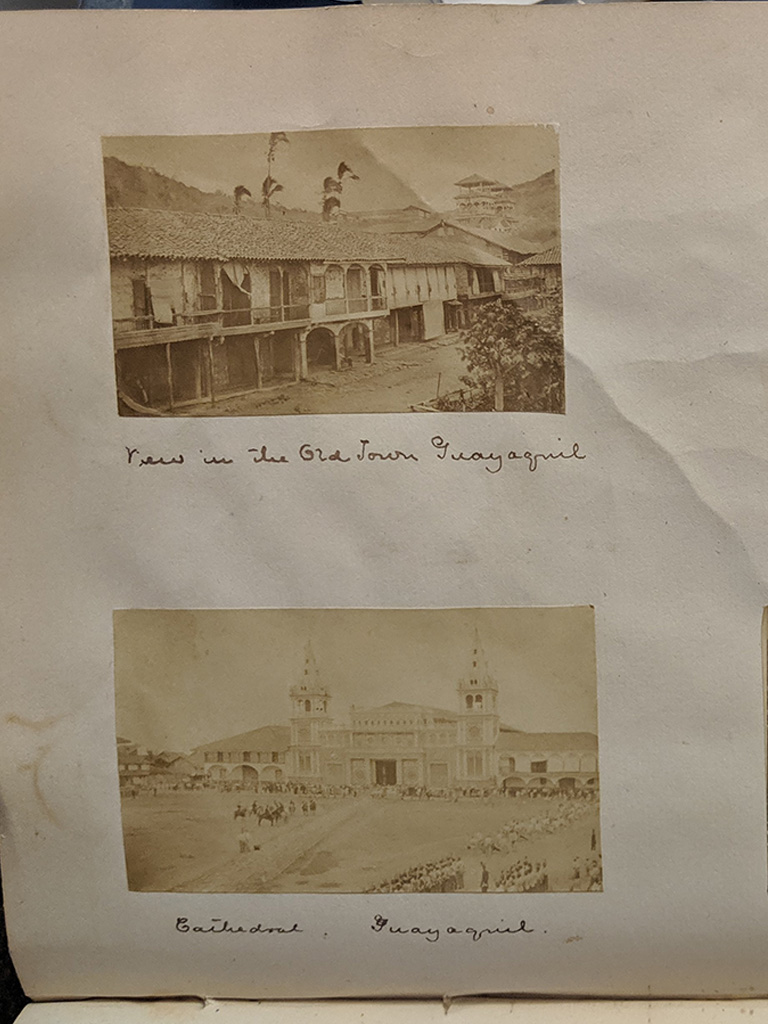 View in the Old Town Guayaquil
Cathedral. Guayaquil.